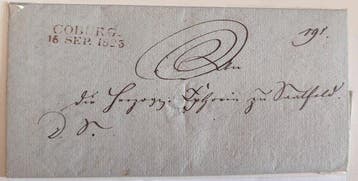 COBURG. 191.
16 SEP. 1823
An
die Herzogl. zu Saalfeld.
d. S.